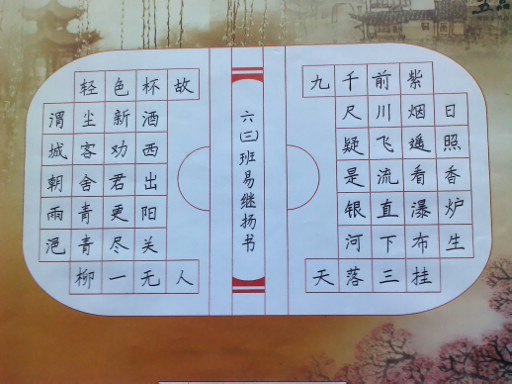 日照香炉生
紫烟遥看瀑布挂
前川飞流直下三
千尺疑是银河落
九天
渭城朝雨浥
轻尘客舍青青柳
色新劝君更尽一
杯酒西出阳关无
故人
六(三)班易继扬书